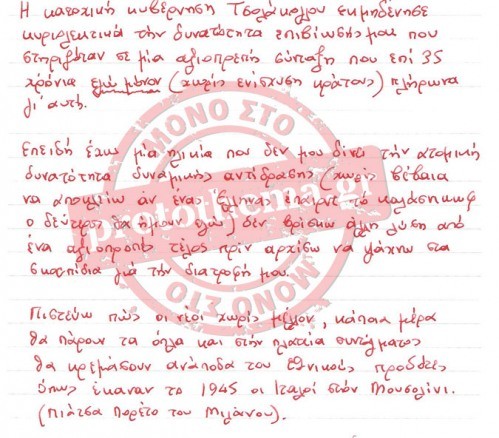 Η κατοχική κυβέρνηση Τσολάκογλου εκμηδένησε
κυριολεκτικά τήν δυνατότητα επιβίωσής μου που
στηριζόταν σε μία αξιοπρεπή σύνταξη που επί 35
χρόνια εγώ μόνον (χωρίς ενίσχυση κράτους) πλήρωνα
γι' αυτή.
ΜΟΝΟ ΣΤΟ
Επειδή έχω μία ηλικία που δεν μου δίνει τήν ατομική
δυνατότητα δυναμικής αντίδρασης (χωρίς βέβαια
να αποκλείω άν ένας Έλληνας έπαιρνε το καλάσνικωφ
ο δεύτερος θα ήμουν εγώ) δεν βρίσκω άλλη λύση από
protothema.gr
ένα αξιοπρεπές τέλος πρίν αρχίσω να ψάχνω στα
σκουπίδια γιά τήν διατροφή μου.
ΜΟΝΟ ΣΤΟ
Πιστεύω πώς οι νέοι χωρίς μέλλον, κάποια μέρα
θα πάρουν τα όπλα και στήν πλατεία συντάγματος
θα κρεμάσουν ανάποδα τους εθνικούς προδότες
όπως έκαναν το 1945 οι Ιταλοί στόν Μουσολίνι.
(Πιάτσα Πορέτο του Μιλάνου).